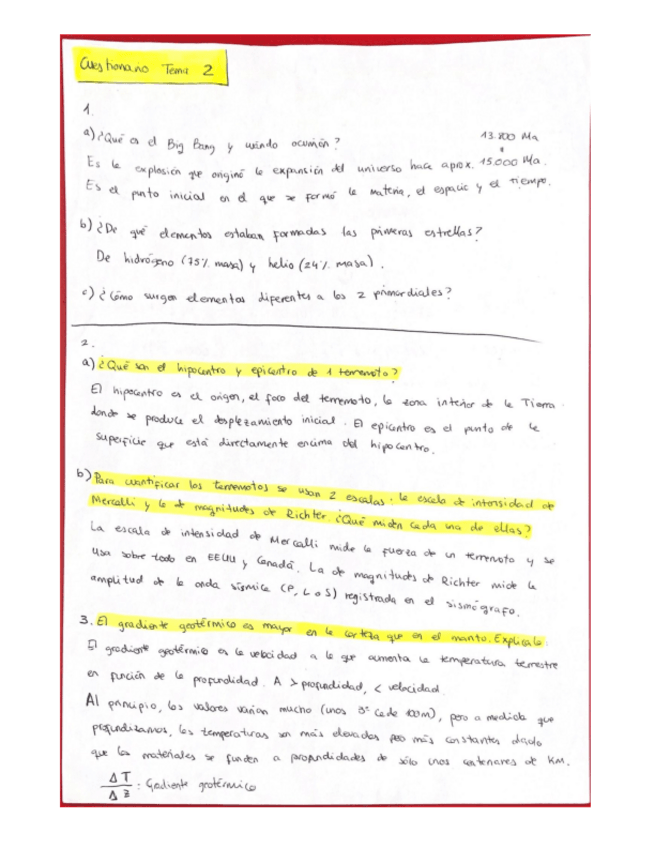 Cuestionario Tema 2
1.
a) ¿Qué es el Big Bang y cuándo ocurrió?
13.800 Ma
Es la explosión que originó la expansión del universo hace aprox. 15.000 Ma.
Es el punto inicial en el que se formó la materia, el espacio y el tiempo.
b) ¿De qué elementos estaban formadas las primeras estrellas?
De hidrógeno (75% masa) y helio (24% masa).
c) ¿Cómo surgen elementos diferentes a los 2 primordiales?
2.
a) ¿Qué son el hipocentro y epicentro de 1 terremoto?
El hipocentro es el origen, el foco del terremoto, la zona interior de la Tierra
donde se produce el desplazamiento inicial. El epicentro es el punto de la
superficie que está directamente encima del hipocentro.
b) Para cuantificar los terremotos se usan 2 escalas: la escala de intensidad de
Mercalli y la de magnitudes de Richter. ¿Qué miden cada una de ellas?
La escala de intensidad de Mercalli mide la fuerza de un terremoto y se
usa sobre todo en EEUU y Canadá. La de magnitudes de Richter mide la
amplitud de la onda sísmica (P, L o S) registrada en el sismógrafo.
3. El gradiente geotérmico es mayor en la corteza que en el manto. Explícalo:
El gradiente geotérmico es la velocidad a la que aumenta la temperatura terrestre
en función de la profundidad. A > profundidad, < velocidad.
Al principio, los valores varían mucho (unos 3º cada 100m), pero a medida que
profundizamos, las temperaturas son más elevadas pero más constantes dado
que los materiales se funden a profundidades de sólo unos centenares de KM.
ΔT
ΔZ : Gradiente geotérmico